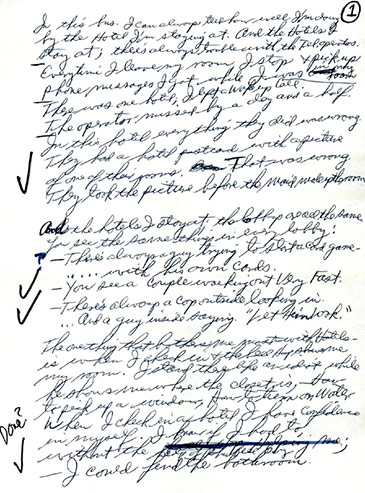 ①
In this bus. I can always tell how well I'm doing
by the Hotel I'm staying at. And the Hotels I
stay at; there's always trouble with the Tel operators.
- Everytime I leave my room, I stop & pick up
phone messages I got while I was
- There was one hotel, I left a wakeup call.
The operator missed by a day and a half
In this hotel everything they did was wrong
They had a hotel postcard with a picture
of one of their rooms. That was wrong
They took the picture before the maid made up the room
And the hotels I stay at, the lobbys are all the same.
You see the same things in every lobby:
? - There's always a guy trying to start a card game -
..... with his own cards.
- You see a couple walking out Very Fast.
- There's always a cop outside looking in.
... And a guy inside saying, "Let Him look."
The one thing that bothers me most with Hotels -
is when I check in & the bellhop shows me
my room. I stand there like an idiot while
he shows me where the closet is, - How
to pick up a window, How to turn on Water
When I check in a hotel I have confidence
in myself. I know if I had to,
without the help of the bellboy;
- I could find the bathroom.
Done?